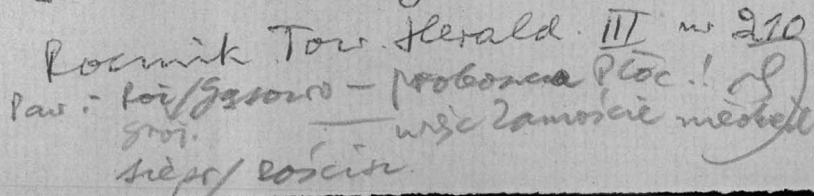 Rocznik Tow. Herald. III nr 210
Par: Roś/Gąsowo – proboszcza Płoc.!
groj. — więc Zamoście
sierp/ Rościsz.